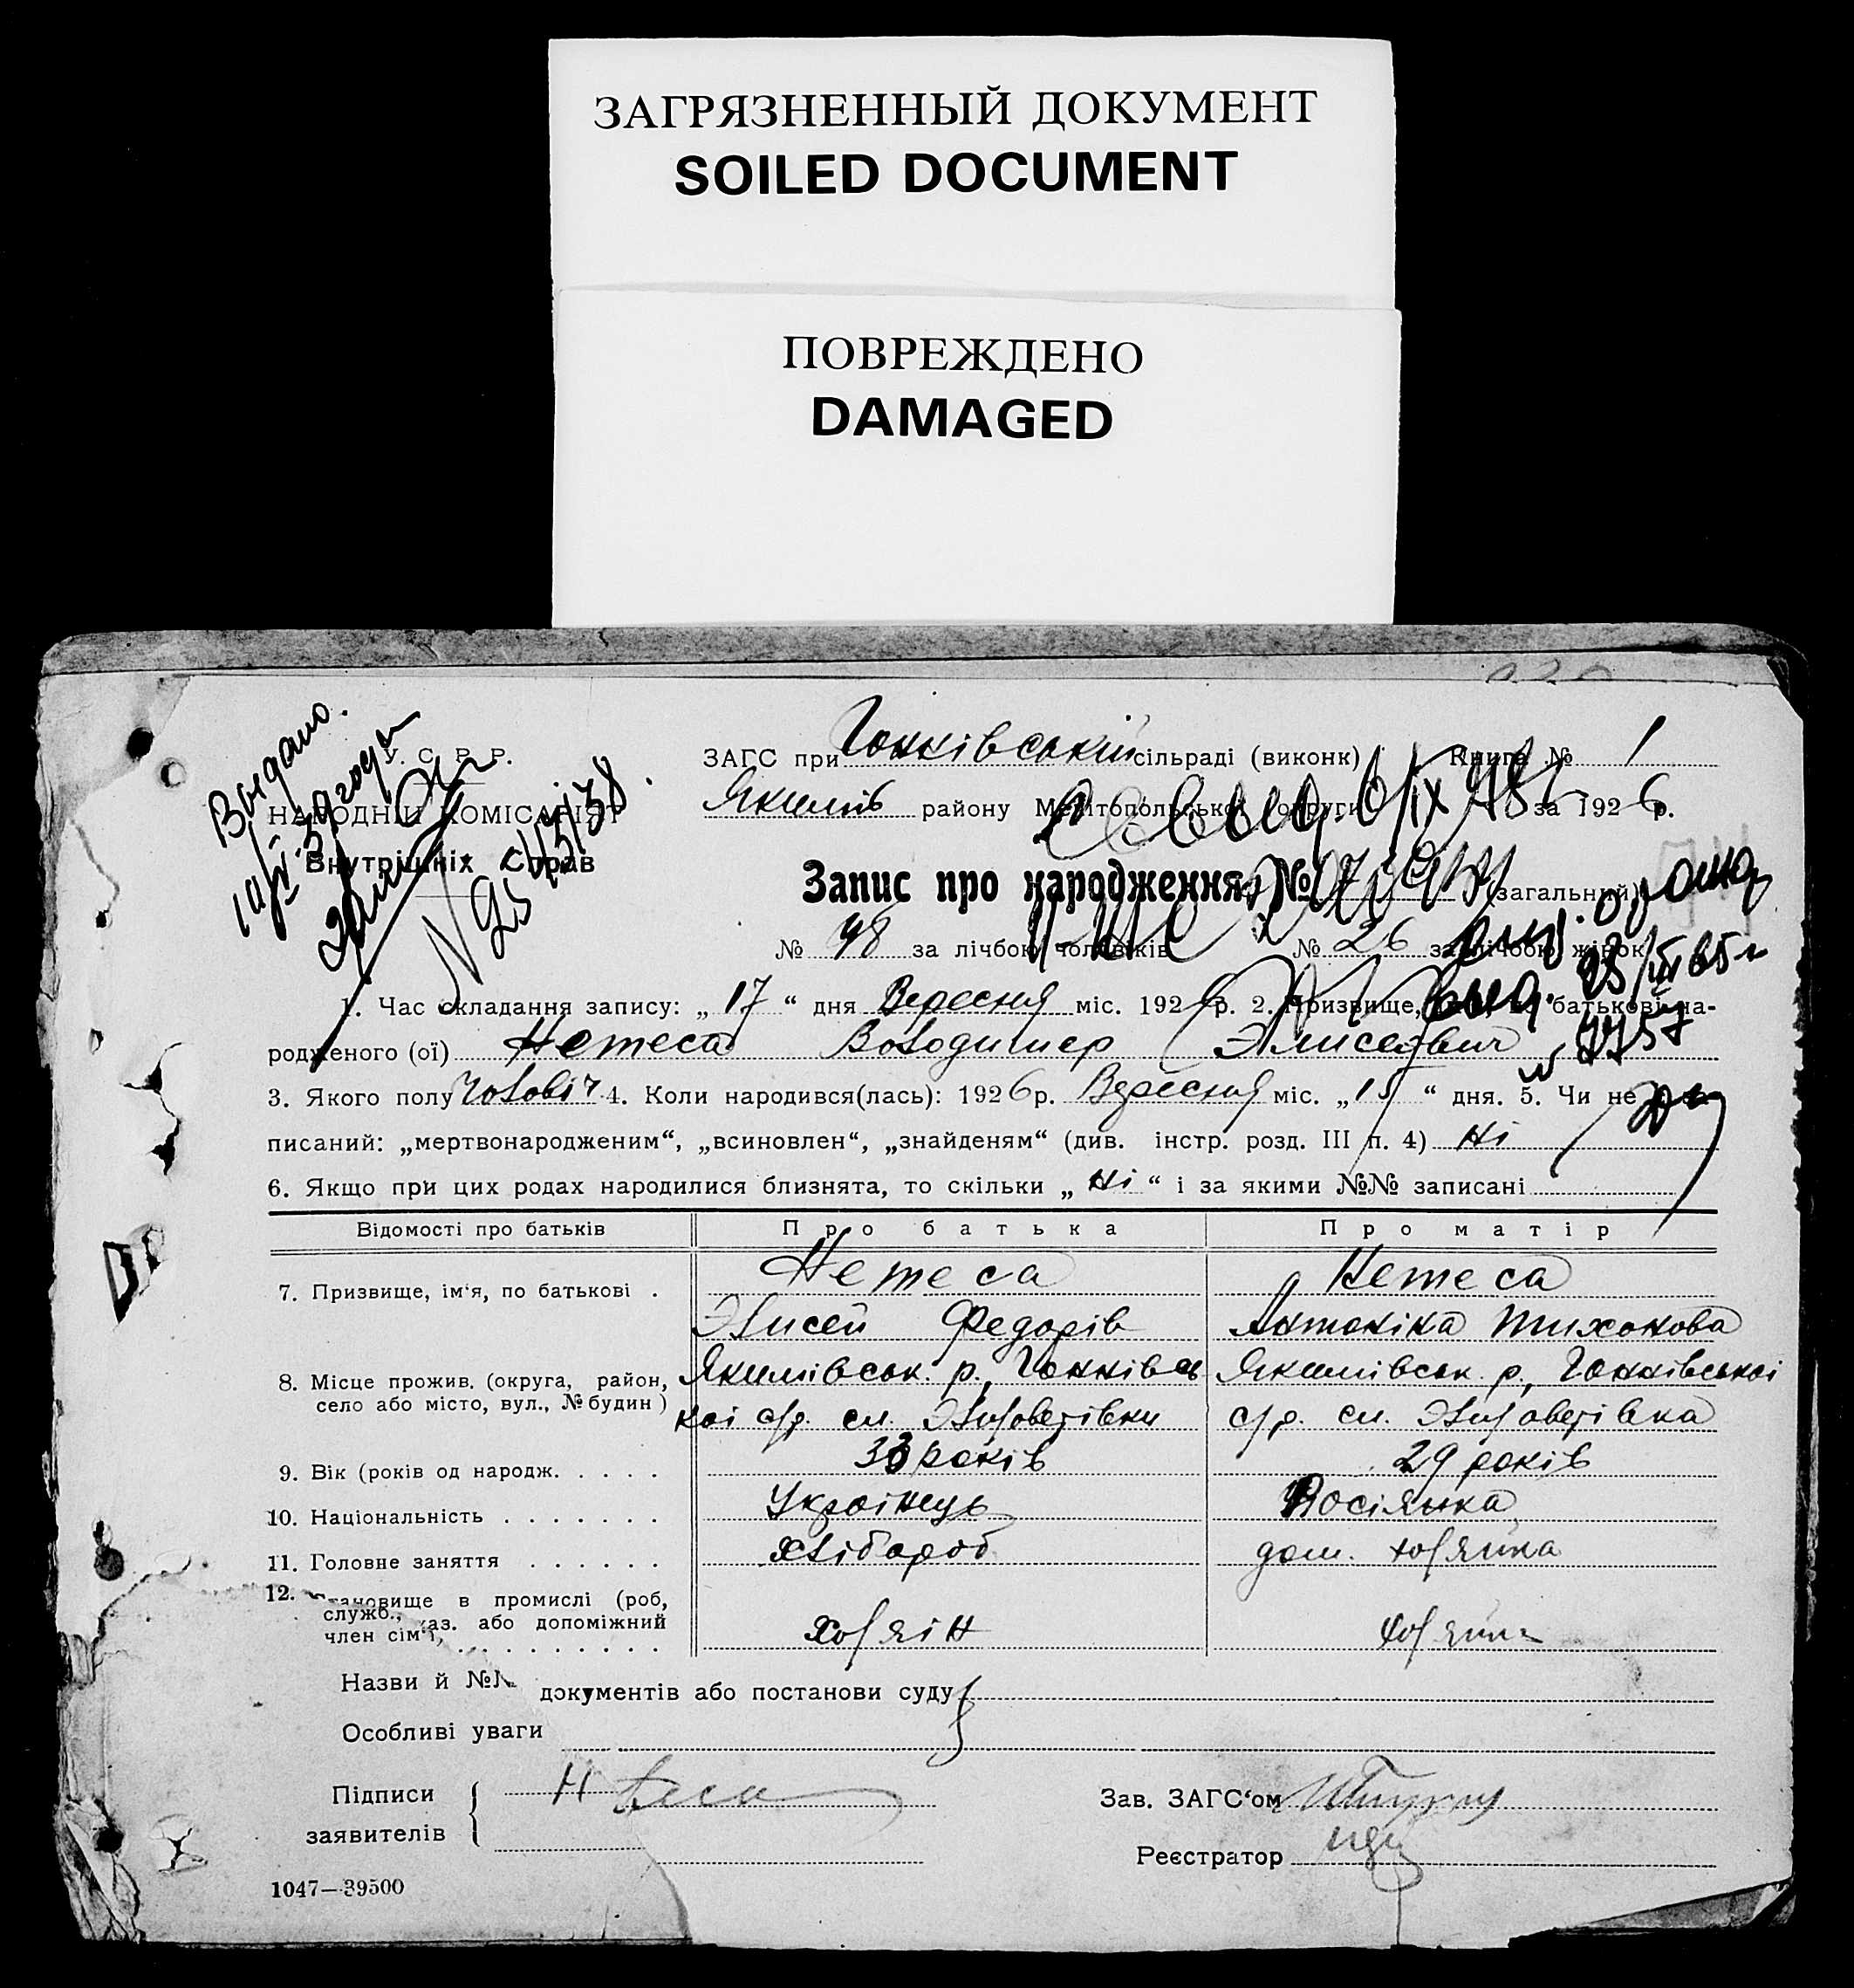 ЗАГРЯЗНЕННЫЙ ДОКУМЕНТ
SOILED DOCUMENT
ПОВРЕЖДЕНО
DAMAGED
Выдано.
У. С. Р. Р.
НАРОДНІЙ КОМІСАРІЯТ
Внутрішніх Справ
ЗАГС при Гоннівський сільраді (виконк) Книга № 1
Якимів району Мелітопольської округи за 1926 р.
Запис про народження № (загальний)
№ 48 за лічбою чоловіків № 26 за лічбою жінок
1. Час складання запису: „ 17 “ дня Вересня міс. 1926 р. 2. Призвище, батькові на-
родженого (ої) Нетеса Володимер Элисеэвич
3. Якого полу Чоловіч 4. Коли народився(лась): 1926 р. Вересня міс. „ 15 “ дня. 5. Чи не
писаний: „мертвонародженим“, „всиновлен“, „знайденям“ (див. інстр. розд. III п. 4) Ні
6. Якщо при цих родах народилися близнята, то скільки „ Ні “ і за якими №№ записані
Відомості про батьків Про батька Про матір
7. Призвище, ім‘я, по батькові . Нетеса Нетеса
Элисей Федорів Антоніна Тихонова
8. Місце прожив. (округа, район, Якимівськ. р., Гоннівсь Якимівськ. р., Гоннівської
село або місто, вул., № будин) кої с/р. см. Элизоветівки с/р. см. Элизаветівка
9. Вік (років од народж. . . . . 33 років 29 років
10. Національність . . . . . . . Українець Росіянка
11. Головне заняття . . . . . . Хлібороб дом. хозяйка
12. Становище в промислі (роб,
служб., каз. або допоміжний
член сім‘ї, . . . . . . . . . Хозяін Хозяйка
Назви й №№ документів або постанови суду
Особливі уваги
Підписи Нетеса
заявителів
Зав. ЗАГС‘ом
Реєстратор
1047—39500